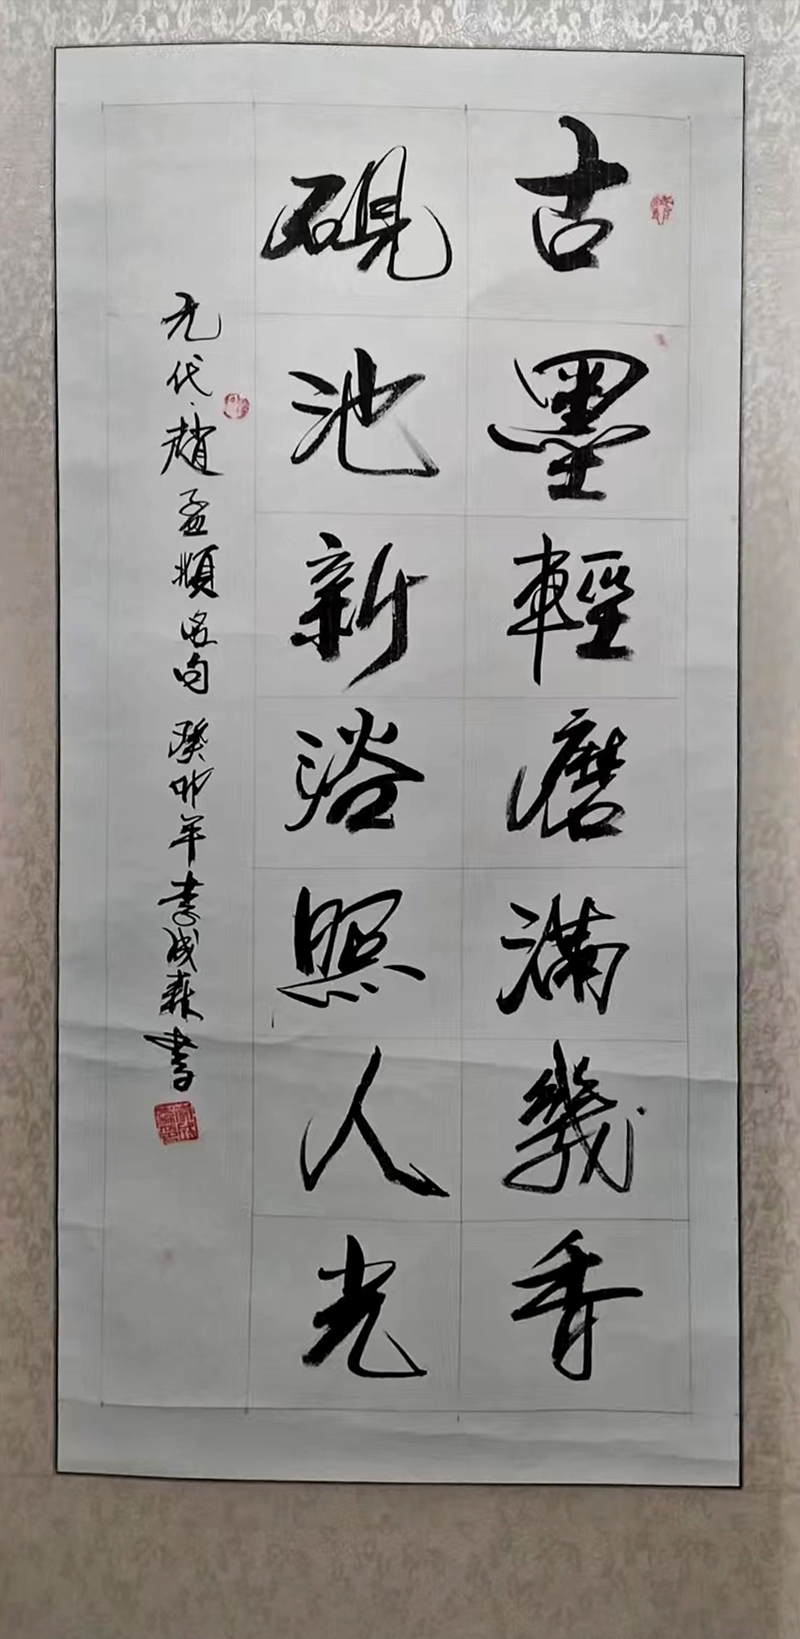 古墨輕磨滿幾香
硯池新浴照人光
元代趙孟頫名句 癸卯年李成森書